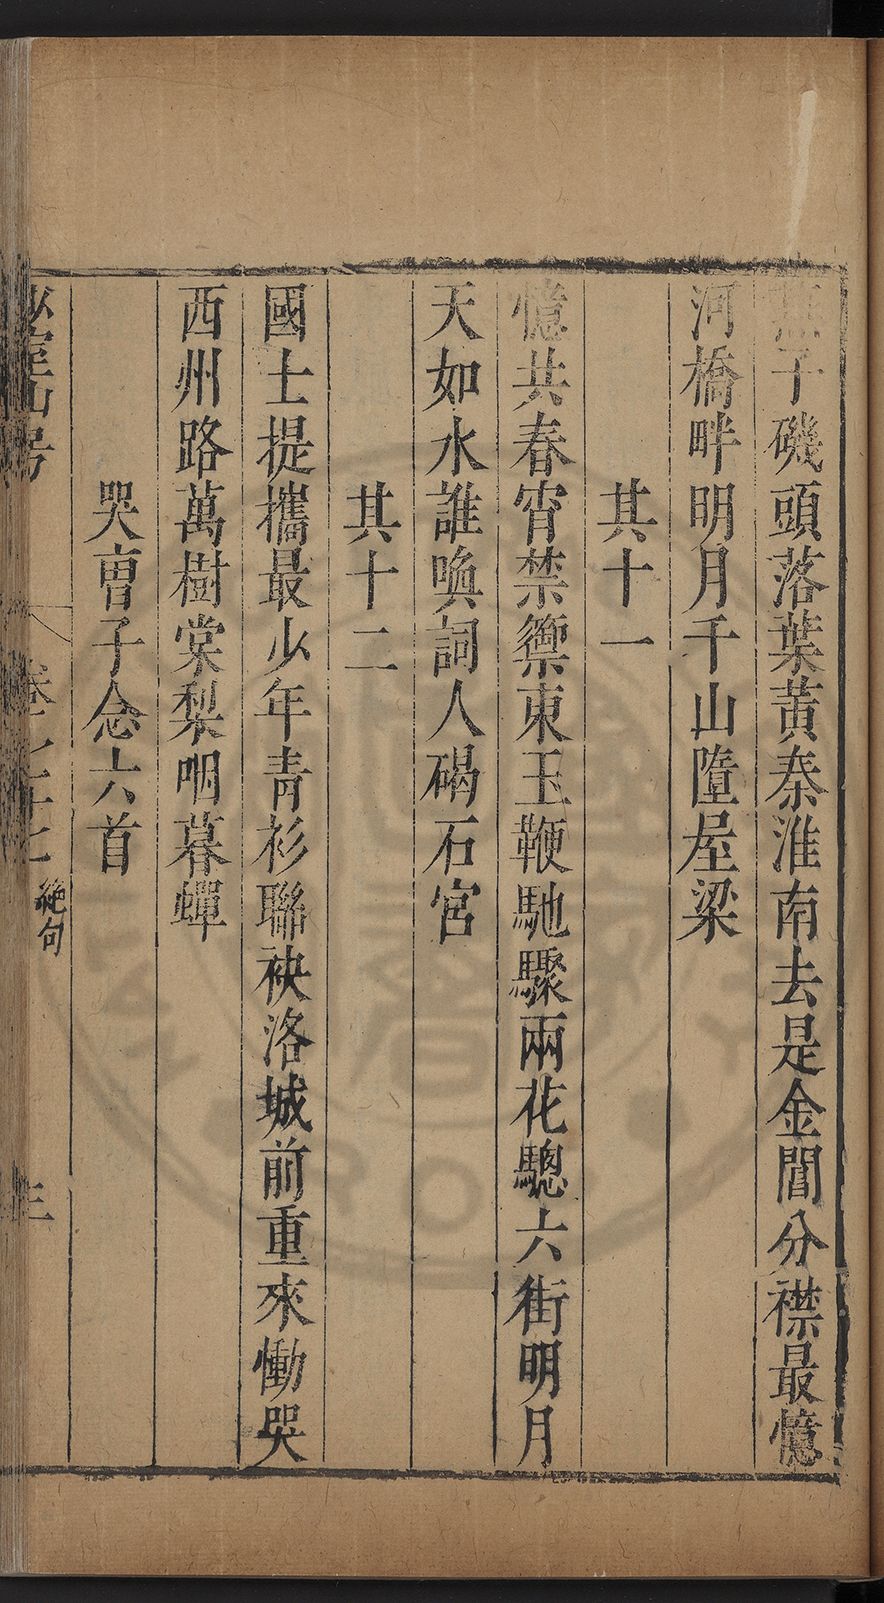 燕子磯頭落葉黃秦淮南去是金閶分襟最憶
河橋畔明月千山墮屋梁
其十一
憶共春宵禁籞東玉鞭馳驟兩花驄六街明月
天如水誰喚詞人碣石宮
其十二
國士提攜最少年青衫聯袂洛城前重來慟哭
西州路萬樹棠梨咽暮蟬
哭曹子念六首
少室山房
卷之七十七 絕句
三